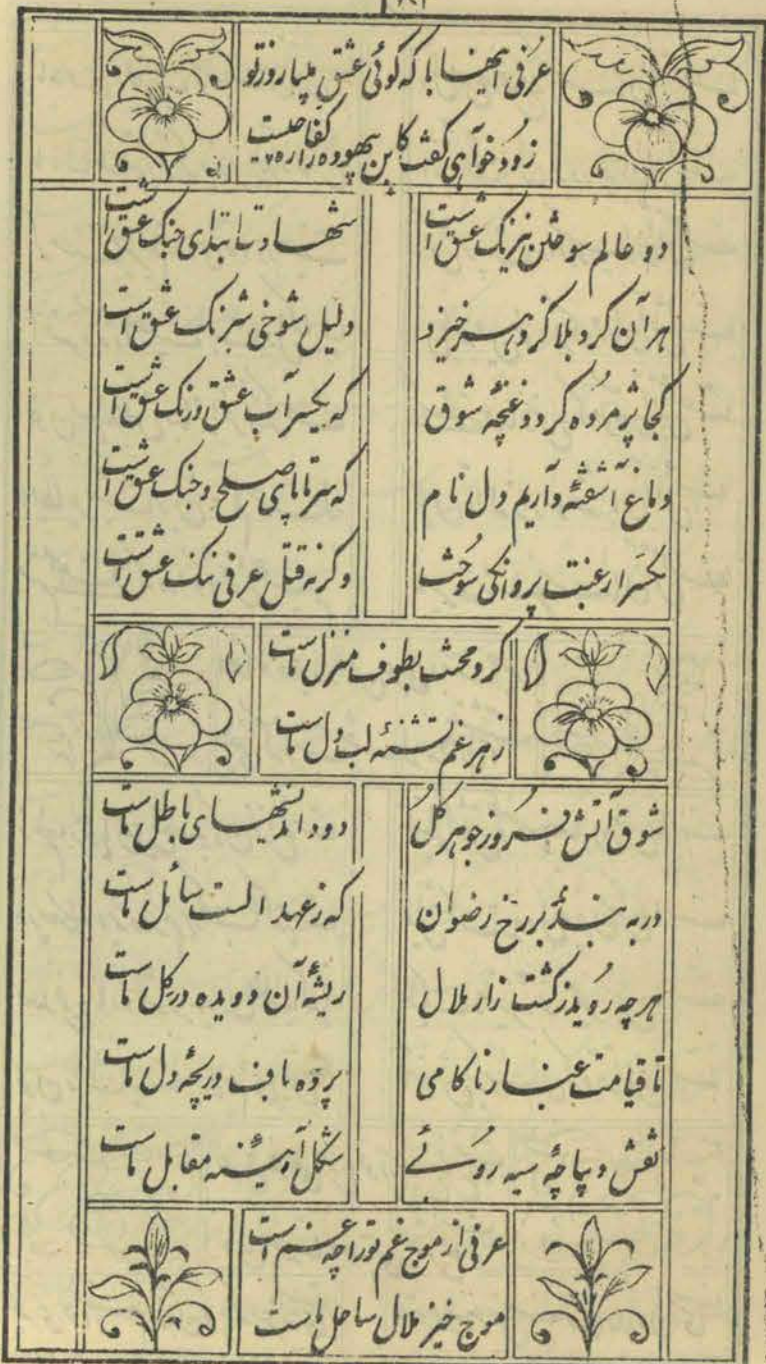 عرفی اینها با که گوئی عشق می‌بارد ز تو
زود خواهی گفت کاین بیهوده را
دو عالم سوختن نیرنگ عشق است
شهادت ابتدای جنگ عشق است
هر آن گرد بلا کز دهر خیزد
دلیل شوخی شبرنگ عشق است
کجا پژمرده گردد غنچه شوق
که یکسر آب عشق و رنگ عشق است
دماغ آشفتۀ داریم دل نام
که سر تا پای صلح و جنگ عشق است
رغبت پروانگی سوخت
وگرنه قتل عرفی ننگ عشق است
گرد محنت بطوف منزل ماست
زهر غم تشنۀ لب دل ماست
شوق آتش فروز جوهر کل
دود اندیشهای باطل ماست
در به بندد بر رخ رضوان
که ز عهد الست سائل ماست
هر چه روید ز کشت زار ملال
ریشۀ آن دویده در گل ماست
تا قیامت غبار ناکامی
پرده باف دریچۀ دل ماست
نقش دیباچۀ سیه روئے
شکل آئینه مقابل ماست
عرفی از موج غم تو را چه غم است
موج خیز ملال ساحل ماست